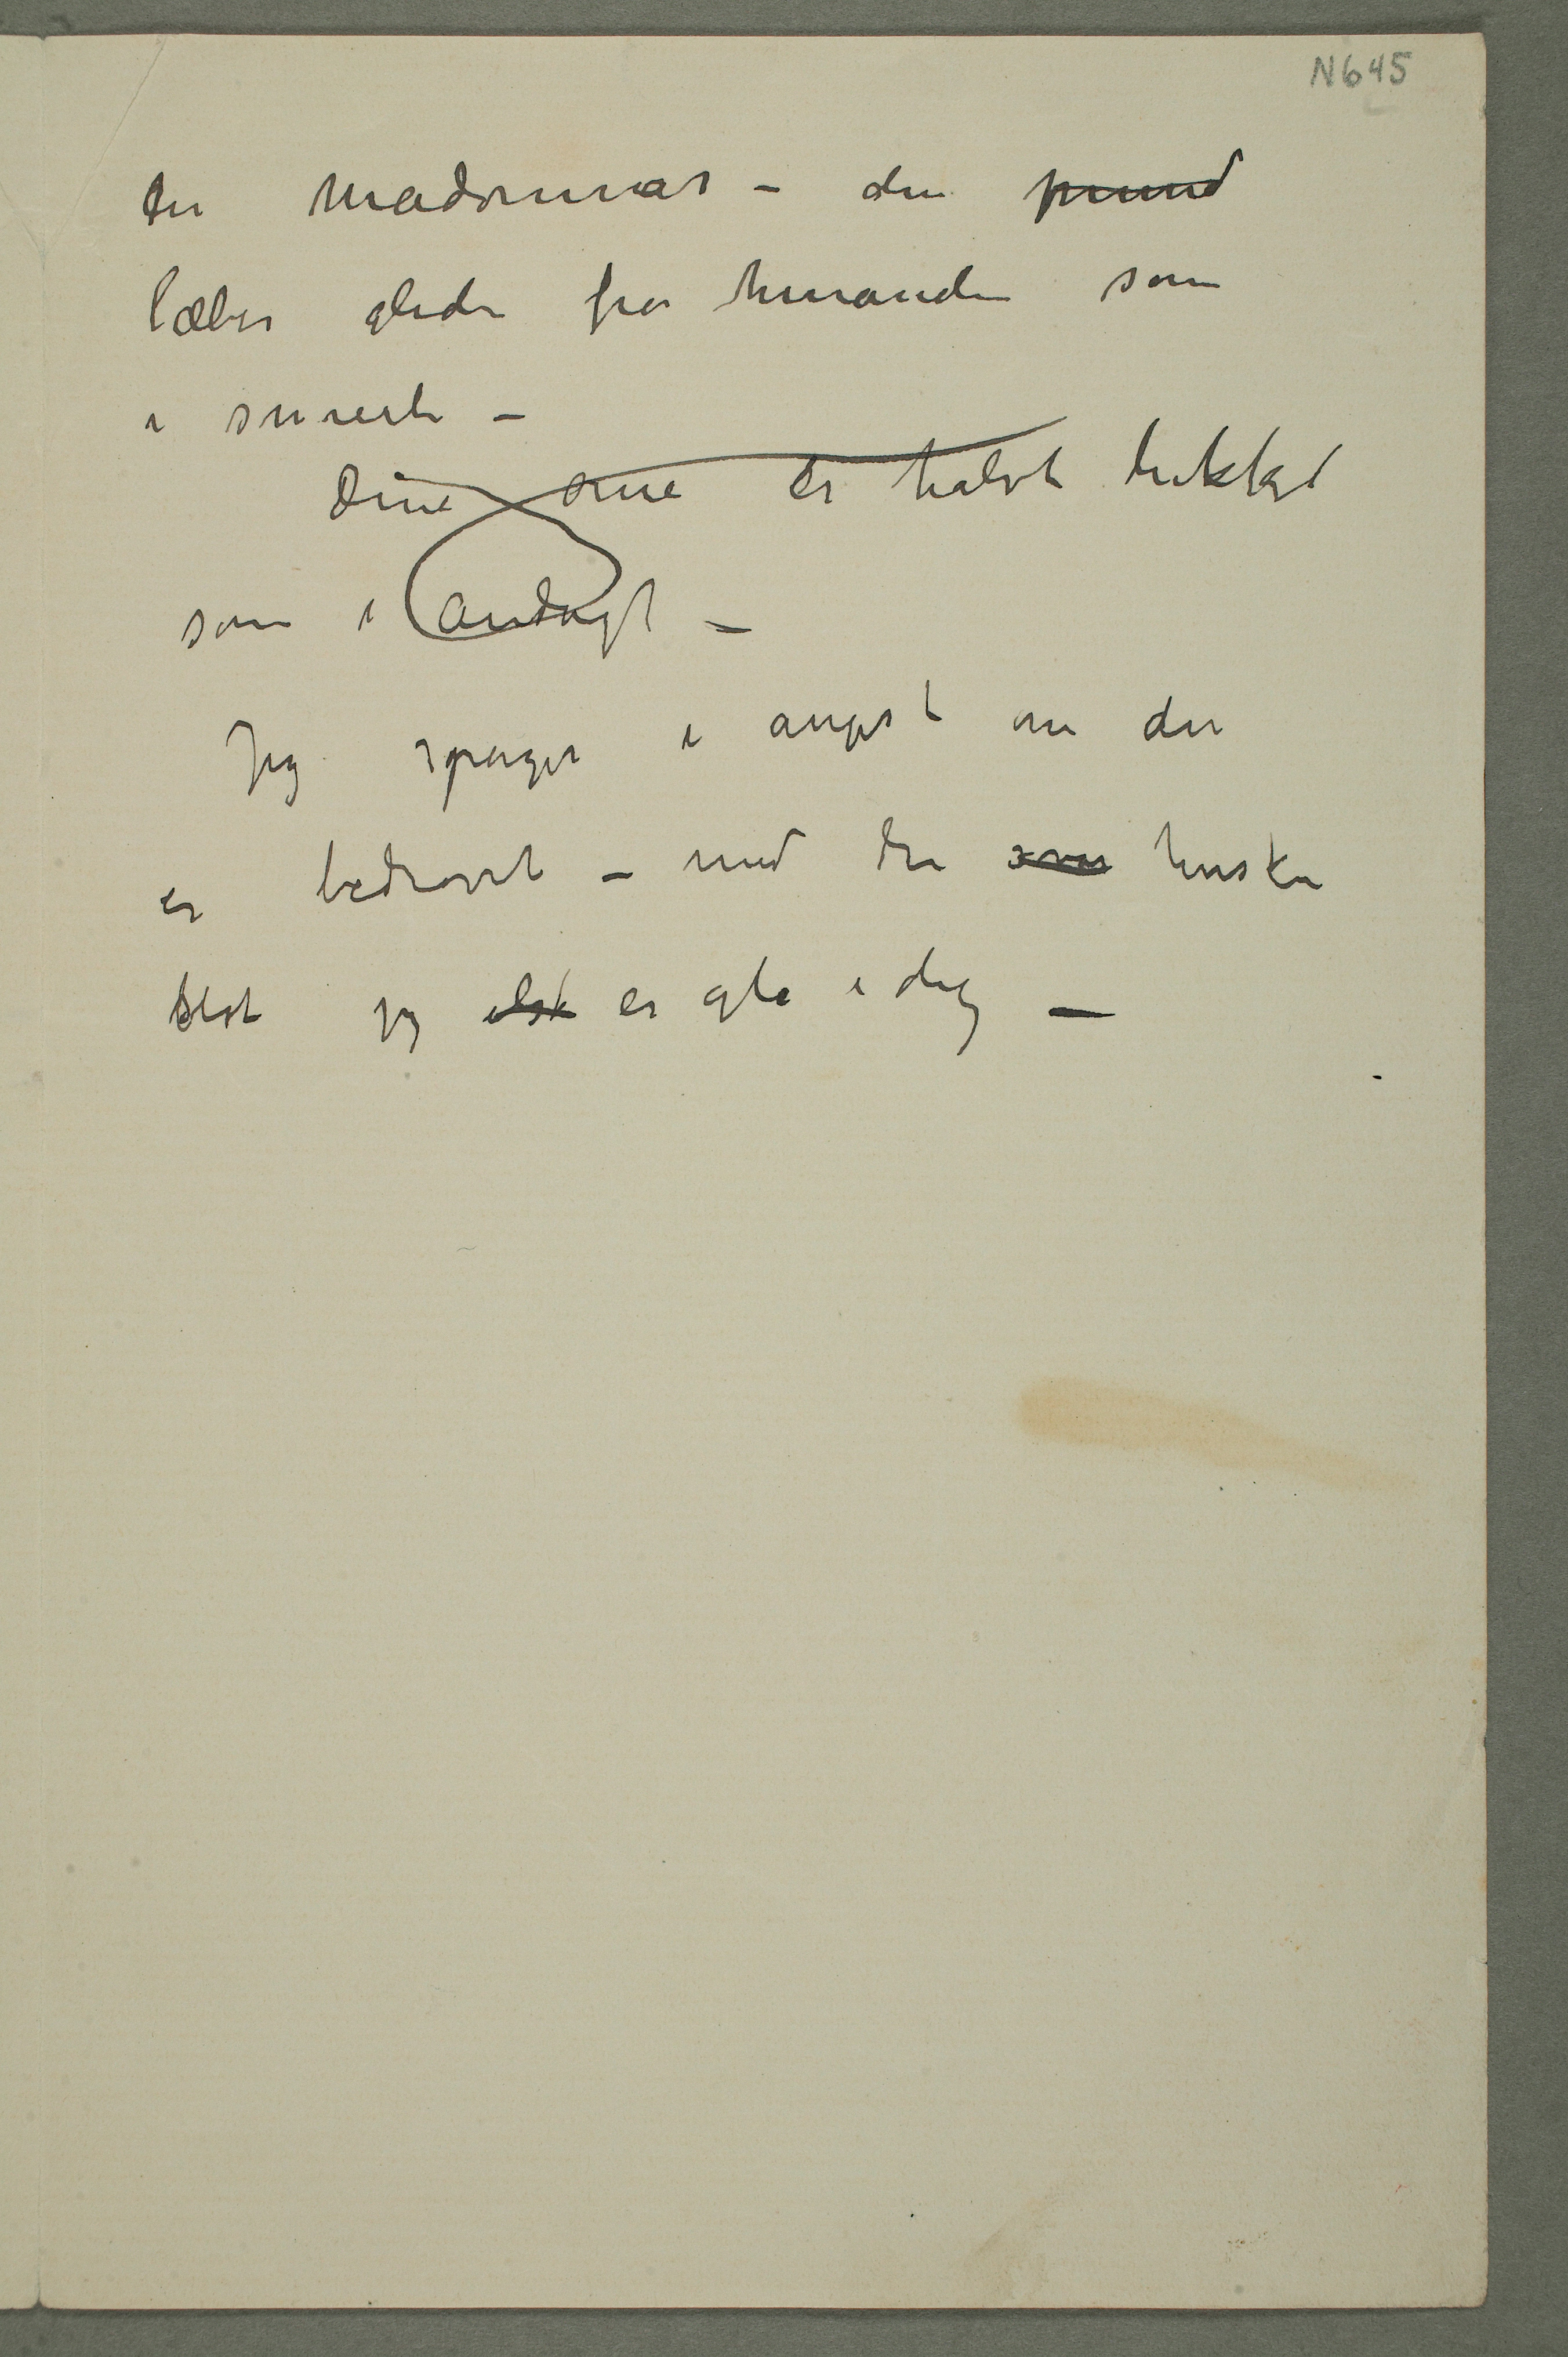 N645
en Madonnas – dine mund
læber glider fra hinanden som
i smerte –
Dine øine er halvt lukket
som i andagt –
Jeg spørger i angst om du
er bedrøvet – med du hvisker
blot jeg elsk er gla i dig –